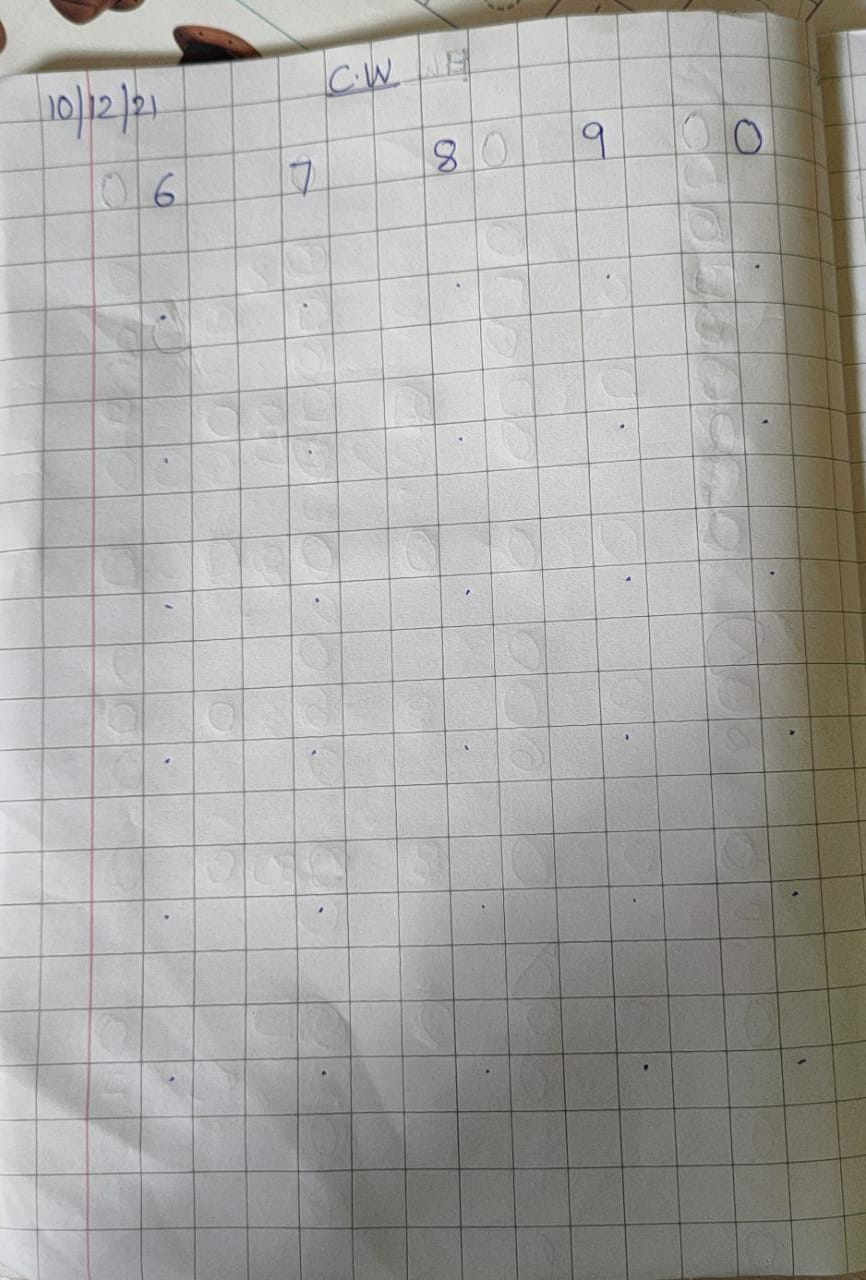 10/12/21 C.W
6 7 8 9 0